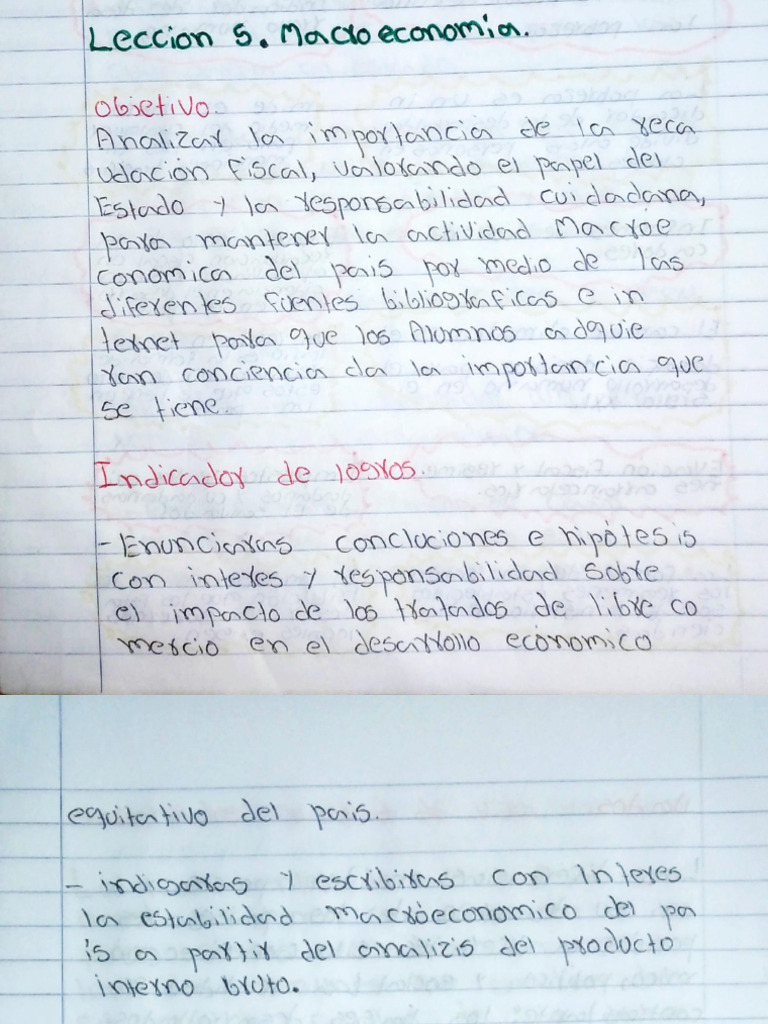 Leccion 5. Macroeconomia.
Objetivo.
Analizar la importancia de la reca
udación fiscal, valorando el papel del
Estado y la responsabilidad cuidadana,
para mantener la actividad Macróe
conomica del pais por medio de las
diferentes fuentes bibliograficas e in
ternet para que los Alumnos adquie
ran conciencia da la importancia que
se tiene.
Indicador de lógros.
- Enunciaras conclaciones e hipótesis
con interes y responsabilidad sobre
el impacto de los tratados de libre co
mercio en el desarrollo ecónomico
equitativo del pais.
- indigaras y escribiras con Interes
la estabilidad Macróeconomico del pa
is a partir del analizis del producto
interno bruto.